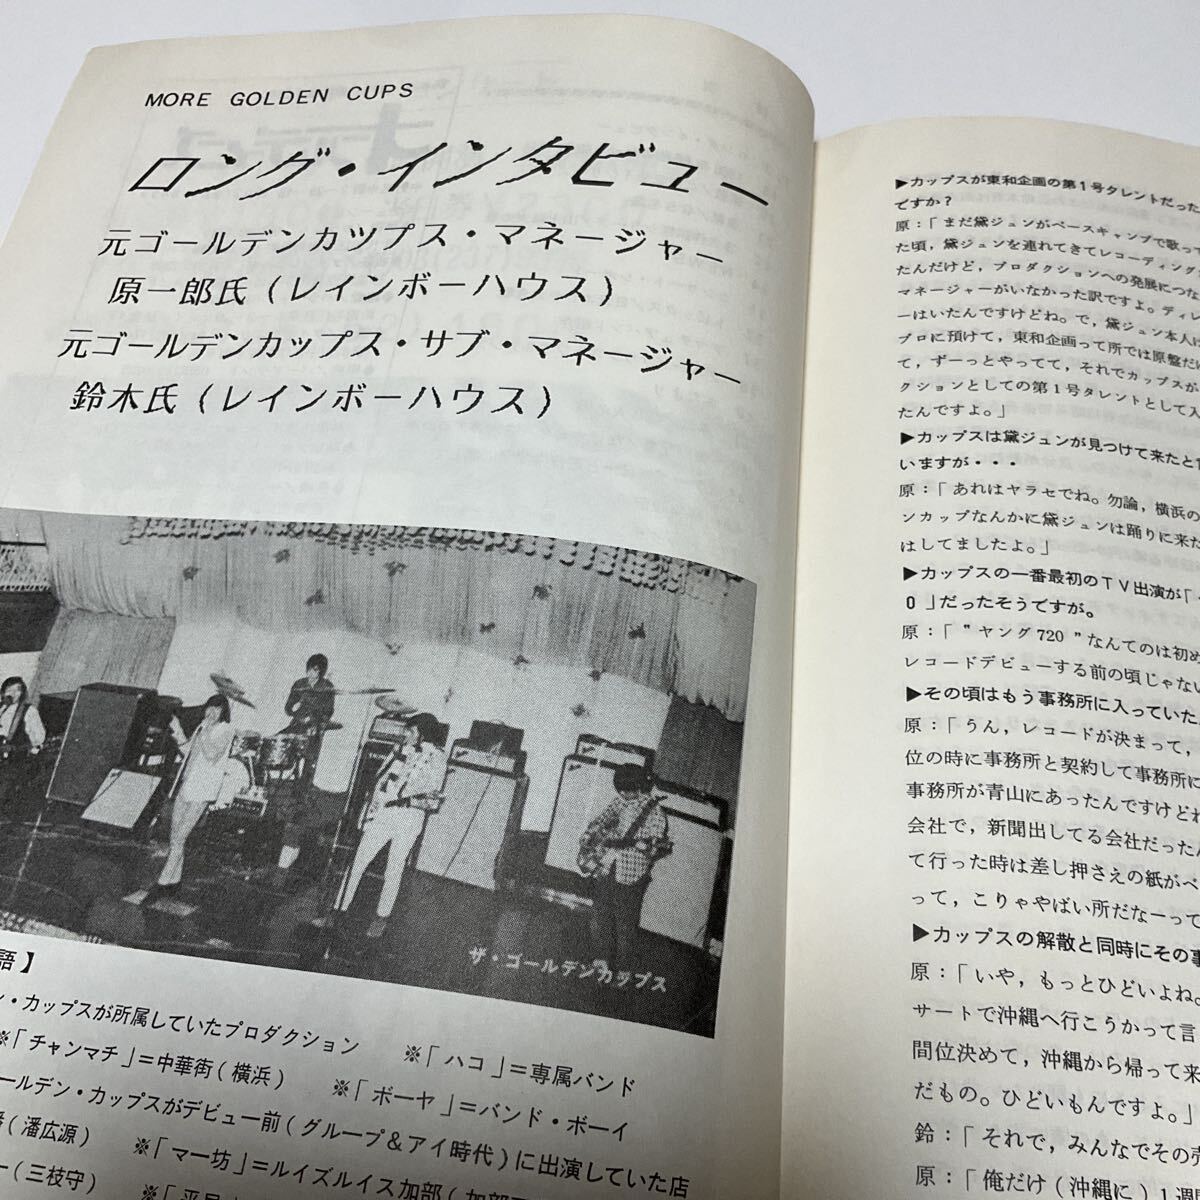 MORE GOLDEN CUPS
ロング・インタビュー
元ゴールデンカツプス・マネージャー
原一郎氏(レインボーハウス)
元ゴールデンカップス・サブ・マネージャー
鈴木氏(レインボーハウス)
ザ・ゴールデンカップス
語】
ン・カップスが所属していたプロダクション
※「ハコ」=専属バンド
※「チャンマチ」=中華街(横浜)
※「ボーヤ」=バンド・ボーイ
ールデン・カップスがデビュー前(グループ&アイ時代)に出演していた店
(潘広源)
※「マー坊」=ルイズルイス加部(加部
ー(三枝守)
▶カップスが東和企画の第1号タレントだった
ですか?
原:「まだ黛ジュンがベースキャンプで歌って
た頃,黛ジュンを連れてきてレコーディング
たんだけど,プロダクションへの発展につな
マネージャーがいなかった訳ですよ。ディレ
ーはいたんですけどね。で,黛ジュン本人は
プロに預けて,東和企画って所では原盤だけ
て,ずーっとやってて,それでカップスが
クションとしての第1号タレントとして入
たんですよ。」
▶カップスは黛ジュンが見つけて来たと
いますが・・・
原:「あれはヤラセでね。勿論,横浜の
ンカップなんかに黛ジュンは踊りに来た
はしてましたよ。」
▶カップスの一番最初のTV出演が「
0」だったそうですが。
原:「"ヤング720"なんてのは初め
レコードデビューする前の頃じゃない
▶その頃はもう事務所に入っていた
原:「うん,レコードが決まって,
位の時に事務所と契約して事務所に
事務所が青山にあったんですけどね
会社で,新聞出してる会社だったん
て行った時は差し押さえの紙がペ
って,こりゃやばい所だなーって
▶カップスの解散と同時にその事
原:「いや,もっとひどいよね。
サートで沖縄へ行こうかって言
間位決めて,沖縄から帰って来
だもの。ひどいもんですよ。」
鈴:「それで,みんなでその
原:「俺だけ(沖縄に)1週